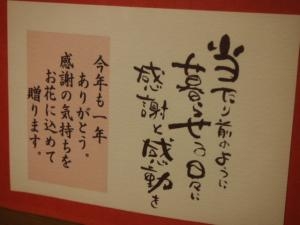 当たり前のように
暮らせる日々に
感謝と感動を
今年も一年
ありがとう。
感謝の気持ちを
お花に込めて
贈ります。